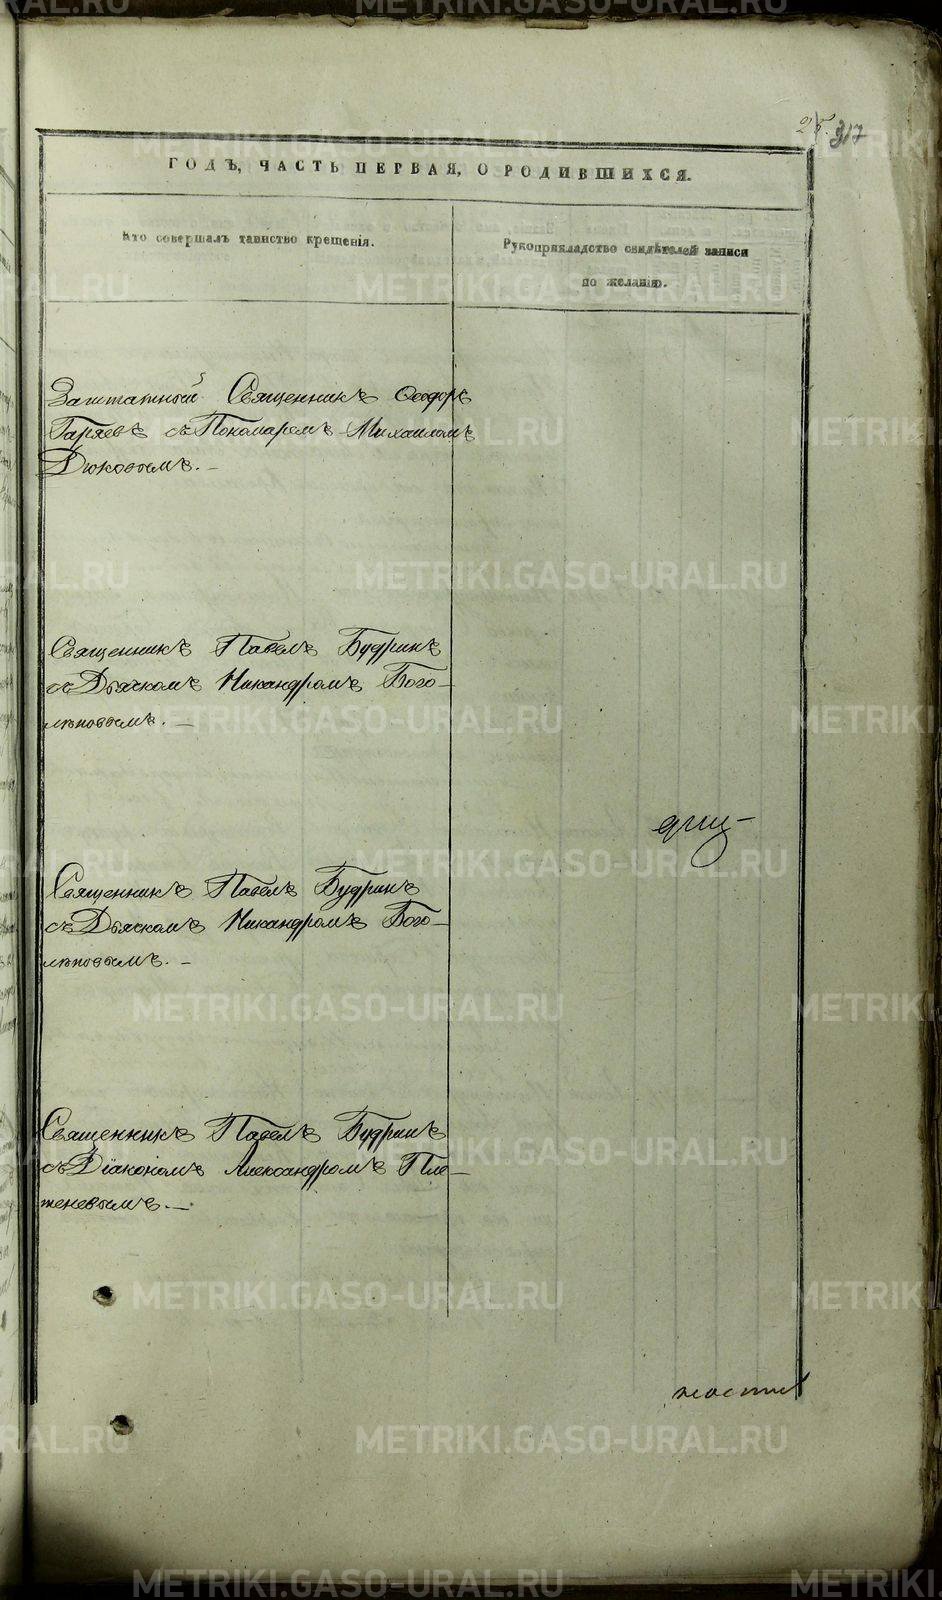 25. 317
ГОДЪ, ЧАСТЬ ПЕРВАЯ, О РОДИВШИХСЯ.
Кто совершалъ таинство крещенія.
Рукоприкладство свидѣтелей записи
по желанію.
Заштатный Священникъ Ѳеодоръ
Гаряевъ съ Пономаремъ Михаиломъ
Дюковымъ. —
Священникъ Павелъ Будринъ
съ Дьячкомъ Никандромъ Бого-
лѣповымъ. —
Священникъ Павелъ Будринъ
съ Дьячкомъ Никандромъ Бого-
лѣповымъ. —
Священникъ Павелъ Будринъ
съ Діакономъ Александромъ Пле-
теневымъ. —
METRIKI.GASO-URAL.RU